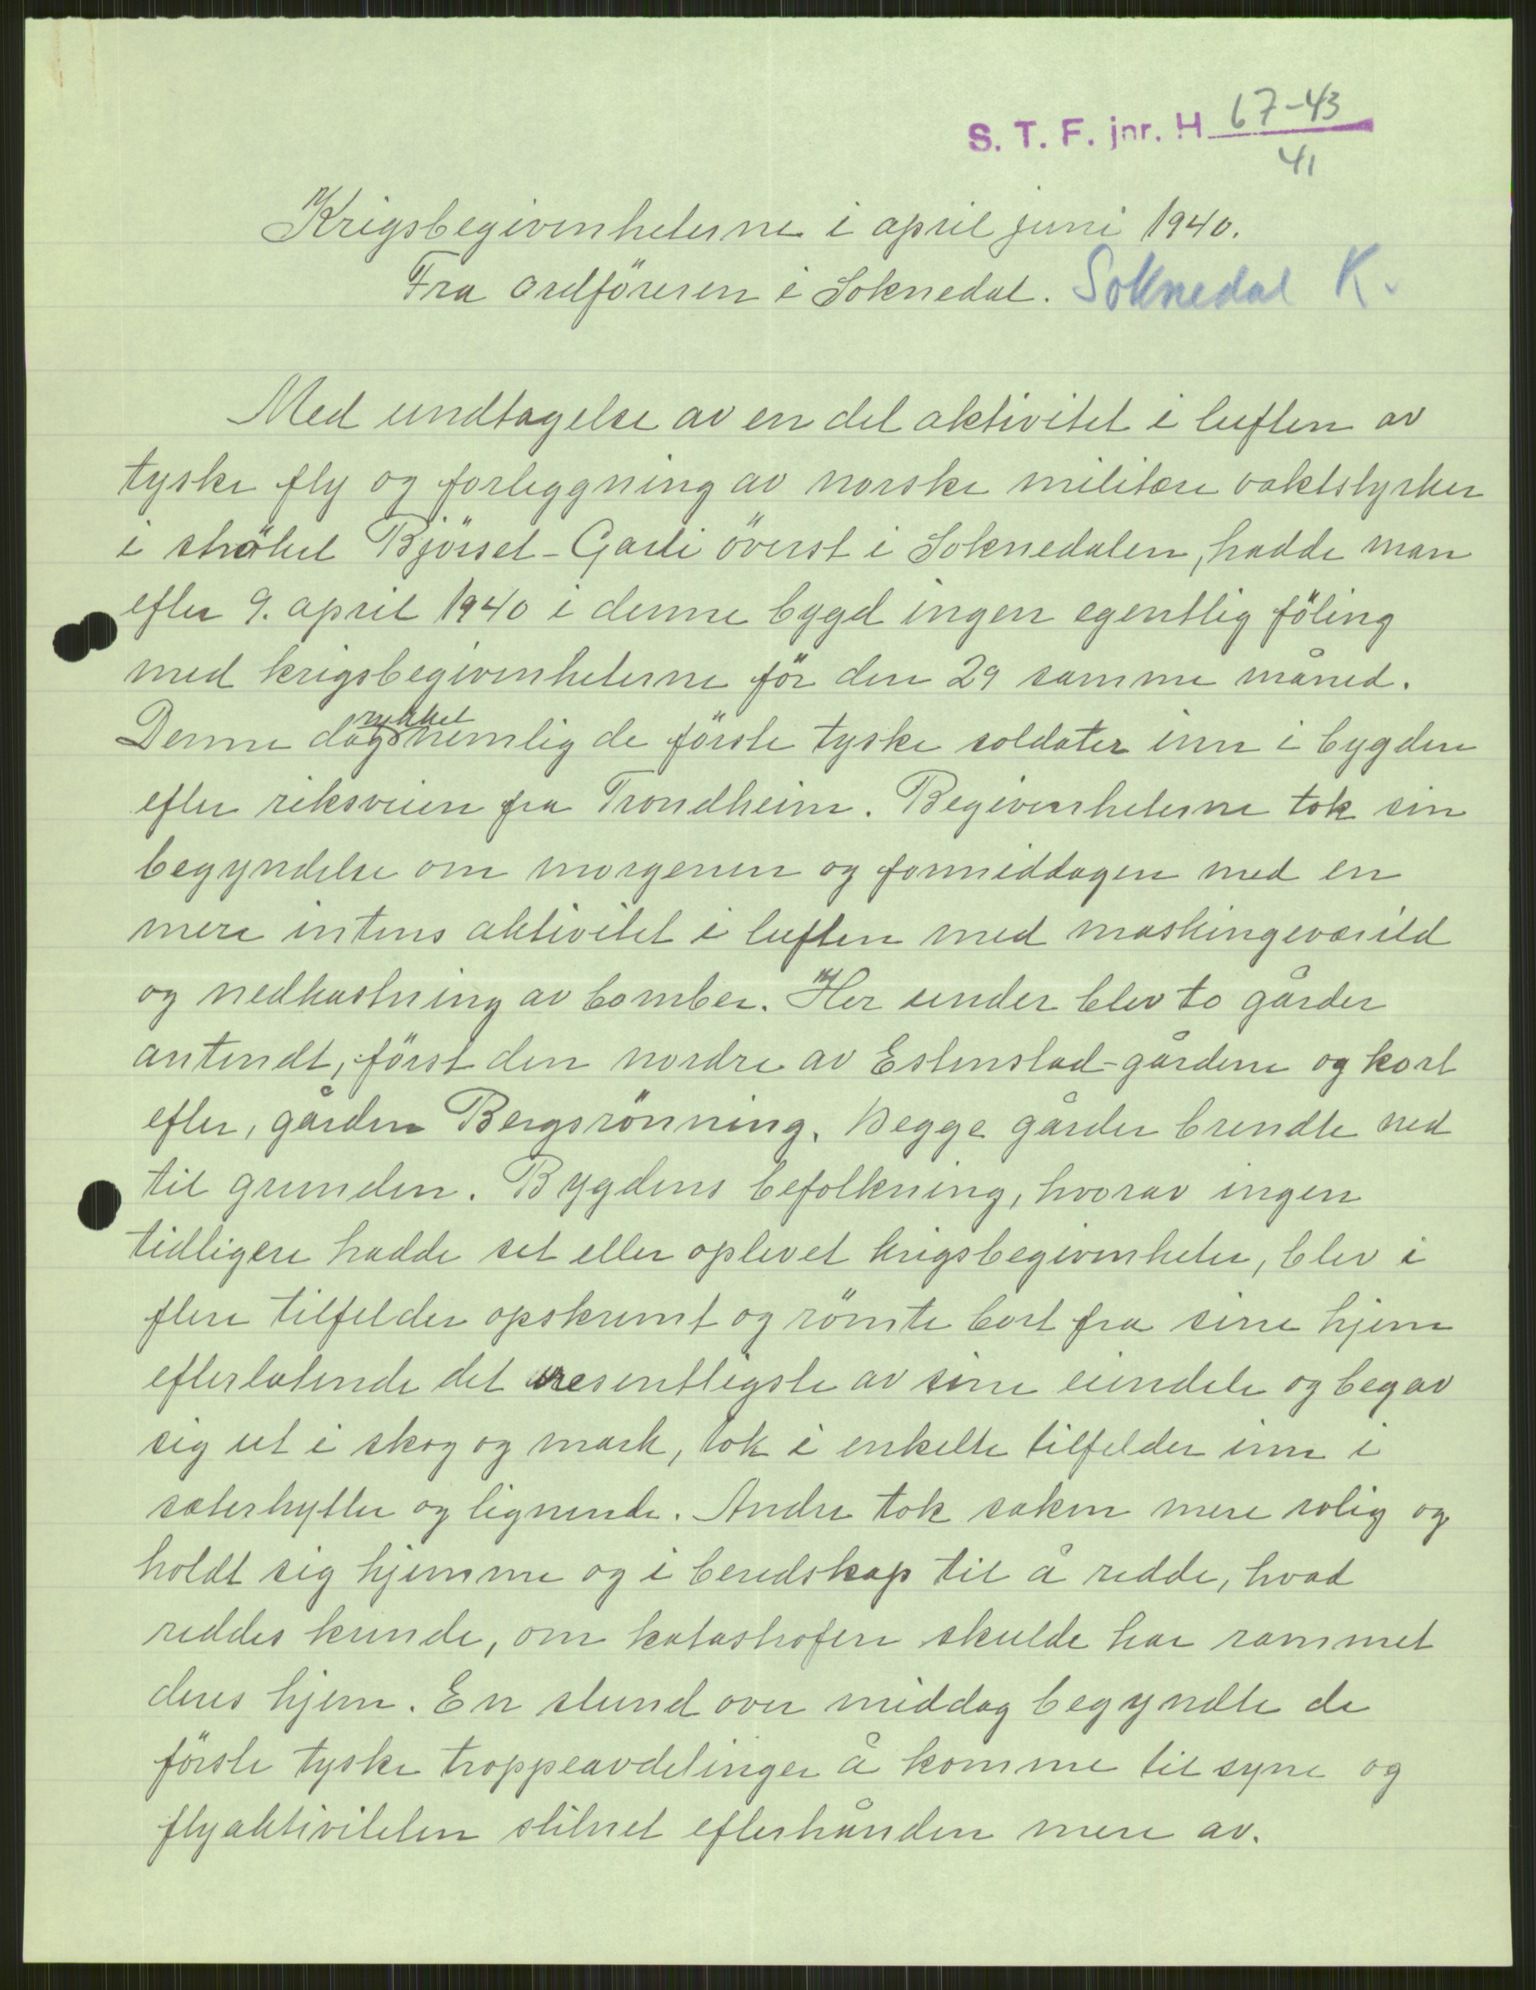 S. T. F. jnr. H 67-43
41
Krigsbegivenheterne i april juni 1940.
Fra ordföreren i Soknedal. Soknedal K.
Med undtagelse av en del aktivitet i luften av
tyske fly og forleggning av norske militære vaktstyrker
i ströket Bjørset-Garli överst i Soknedalen, hadde man
efter 9. april 1940 i denne bygd ingen egentlig föling
med krigsbegivenheterne för den 29 samme måned.
rykket
Denne dag nemlig de förste tyske soldater inn i bygden
efter riksveien fra Trondheim. Begivenheterne tok sin
begyndelse om morgenen og formiddagen med en
mere intens aktivitet i luften med maskingeværild
og nedkastning av bomber. Her under blev to gårder
antendt, först den nordre av Estenstad-gårdene og kort
efter, gården Bergsrönning. Begge gårder brendte ned
til grunden. Bygdens befolkning, hvorav ingen
tidligere hadde set eller oplevet krigsbegivenheter, blev i
flere tilfelder opskremt og römte bort fra sine hjem
efterlatende det vesentligste av sine eiendele og begav
sig ut i skog og mark, tok i enkelte tilfelder inn i
sæterhytter og lignende. Andre tok saken mere rolig og
holdt sig hjemme og i beredskap til å redde, hvad
reddes kunde, om katastrofen skulde ha rammet
deres hjem. En stund over middag begyndte de
förste tyske troppeavdelinger å komme til syne og
flyaktiviteten stilnet efterhånden mere av.